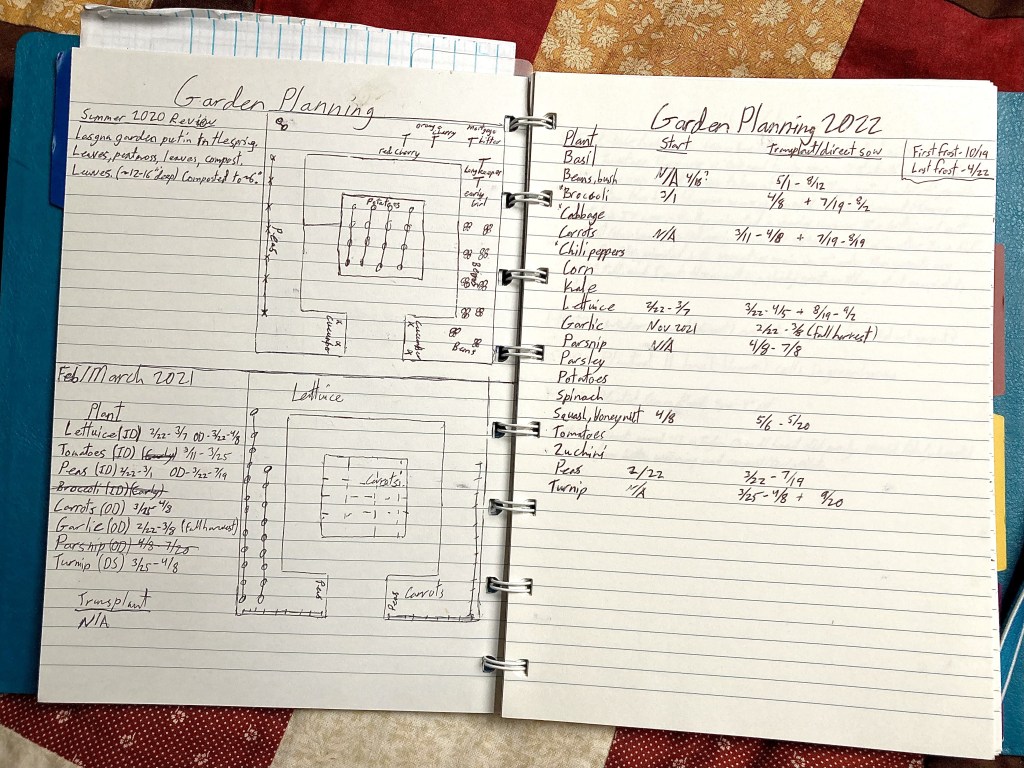 Garden Planning
Summer 2020 Review
Lasgna garden put in in the spring.
Leaves, peatmoss, leaves, compost.
Leaves. (~12-16" deep) Composted to ~6."
orange cherry
red cherry
longkeeper
early girl
Potatoes
Peas
Beans
Cucumber
Cucumber
Beans
Feb/March 2021
Plant
Lettuice (ID) 2/22-3/7 OD-3/22-4/8
Tomatoes (ID) (Early) 3/11-3/25
Peas (ID) 2/22-3/1 OD-3/22-7/19
Brocoli (ID) (Early)
Carrots (OD) 3/25-4/8
Garlic (OD) 2/22-3/8 (full harvest)
Parsnip (OD) 4/8-7/20
Turnip (DS) 3/25-4/8
Transplant
N/A
Lettuice
Carrots
Peas
Peas
Carrots
Garden Planning 2022
Plant Start Transplant/direct sow
First frost-10/19
Last frost-4/22
Basil
Beans, bush N/A 4/18? 5/1-8/12
*Brocoli 3/1 4/8 + 7/19-8/2
'Cabbage
Carrots N/A 3/11-4/8 + 7/19-8/19
'Chili peppers
Corn
Kale
Lettuice 2/22-3/7 3/22-4/5 + 8/19-9/2
Garlic Nov 2021 2/22-3/8 (full harvest)
Parsnip N/A 4/8-7/8
Parsley
Potatoes
Spinach
Squash, Honeynut 4/8 5/6-5/20
Tomatoes
Zuchini
Peas 2/22 3/22-7/19
Turnip N/A 3/25-4/8 + 8/20